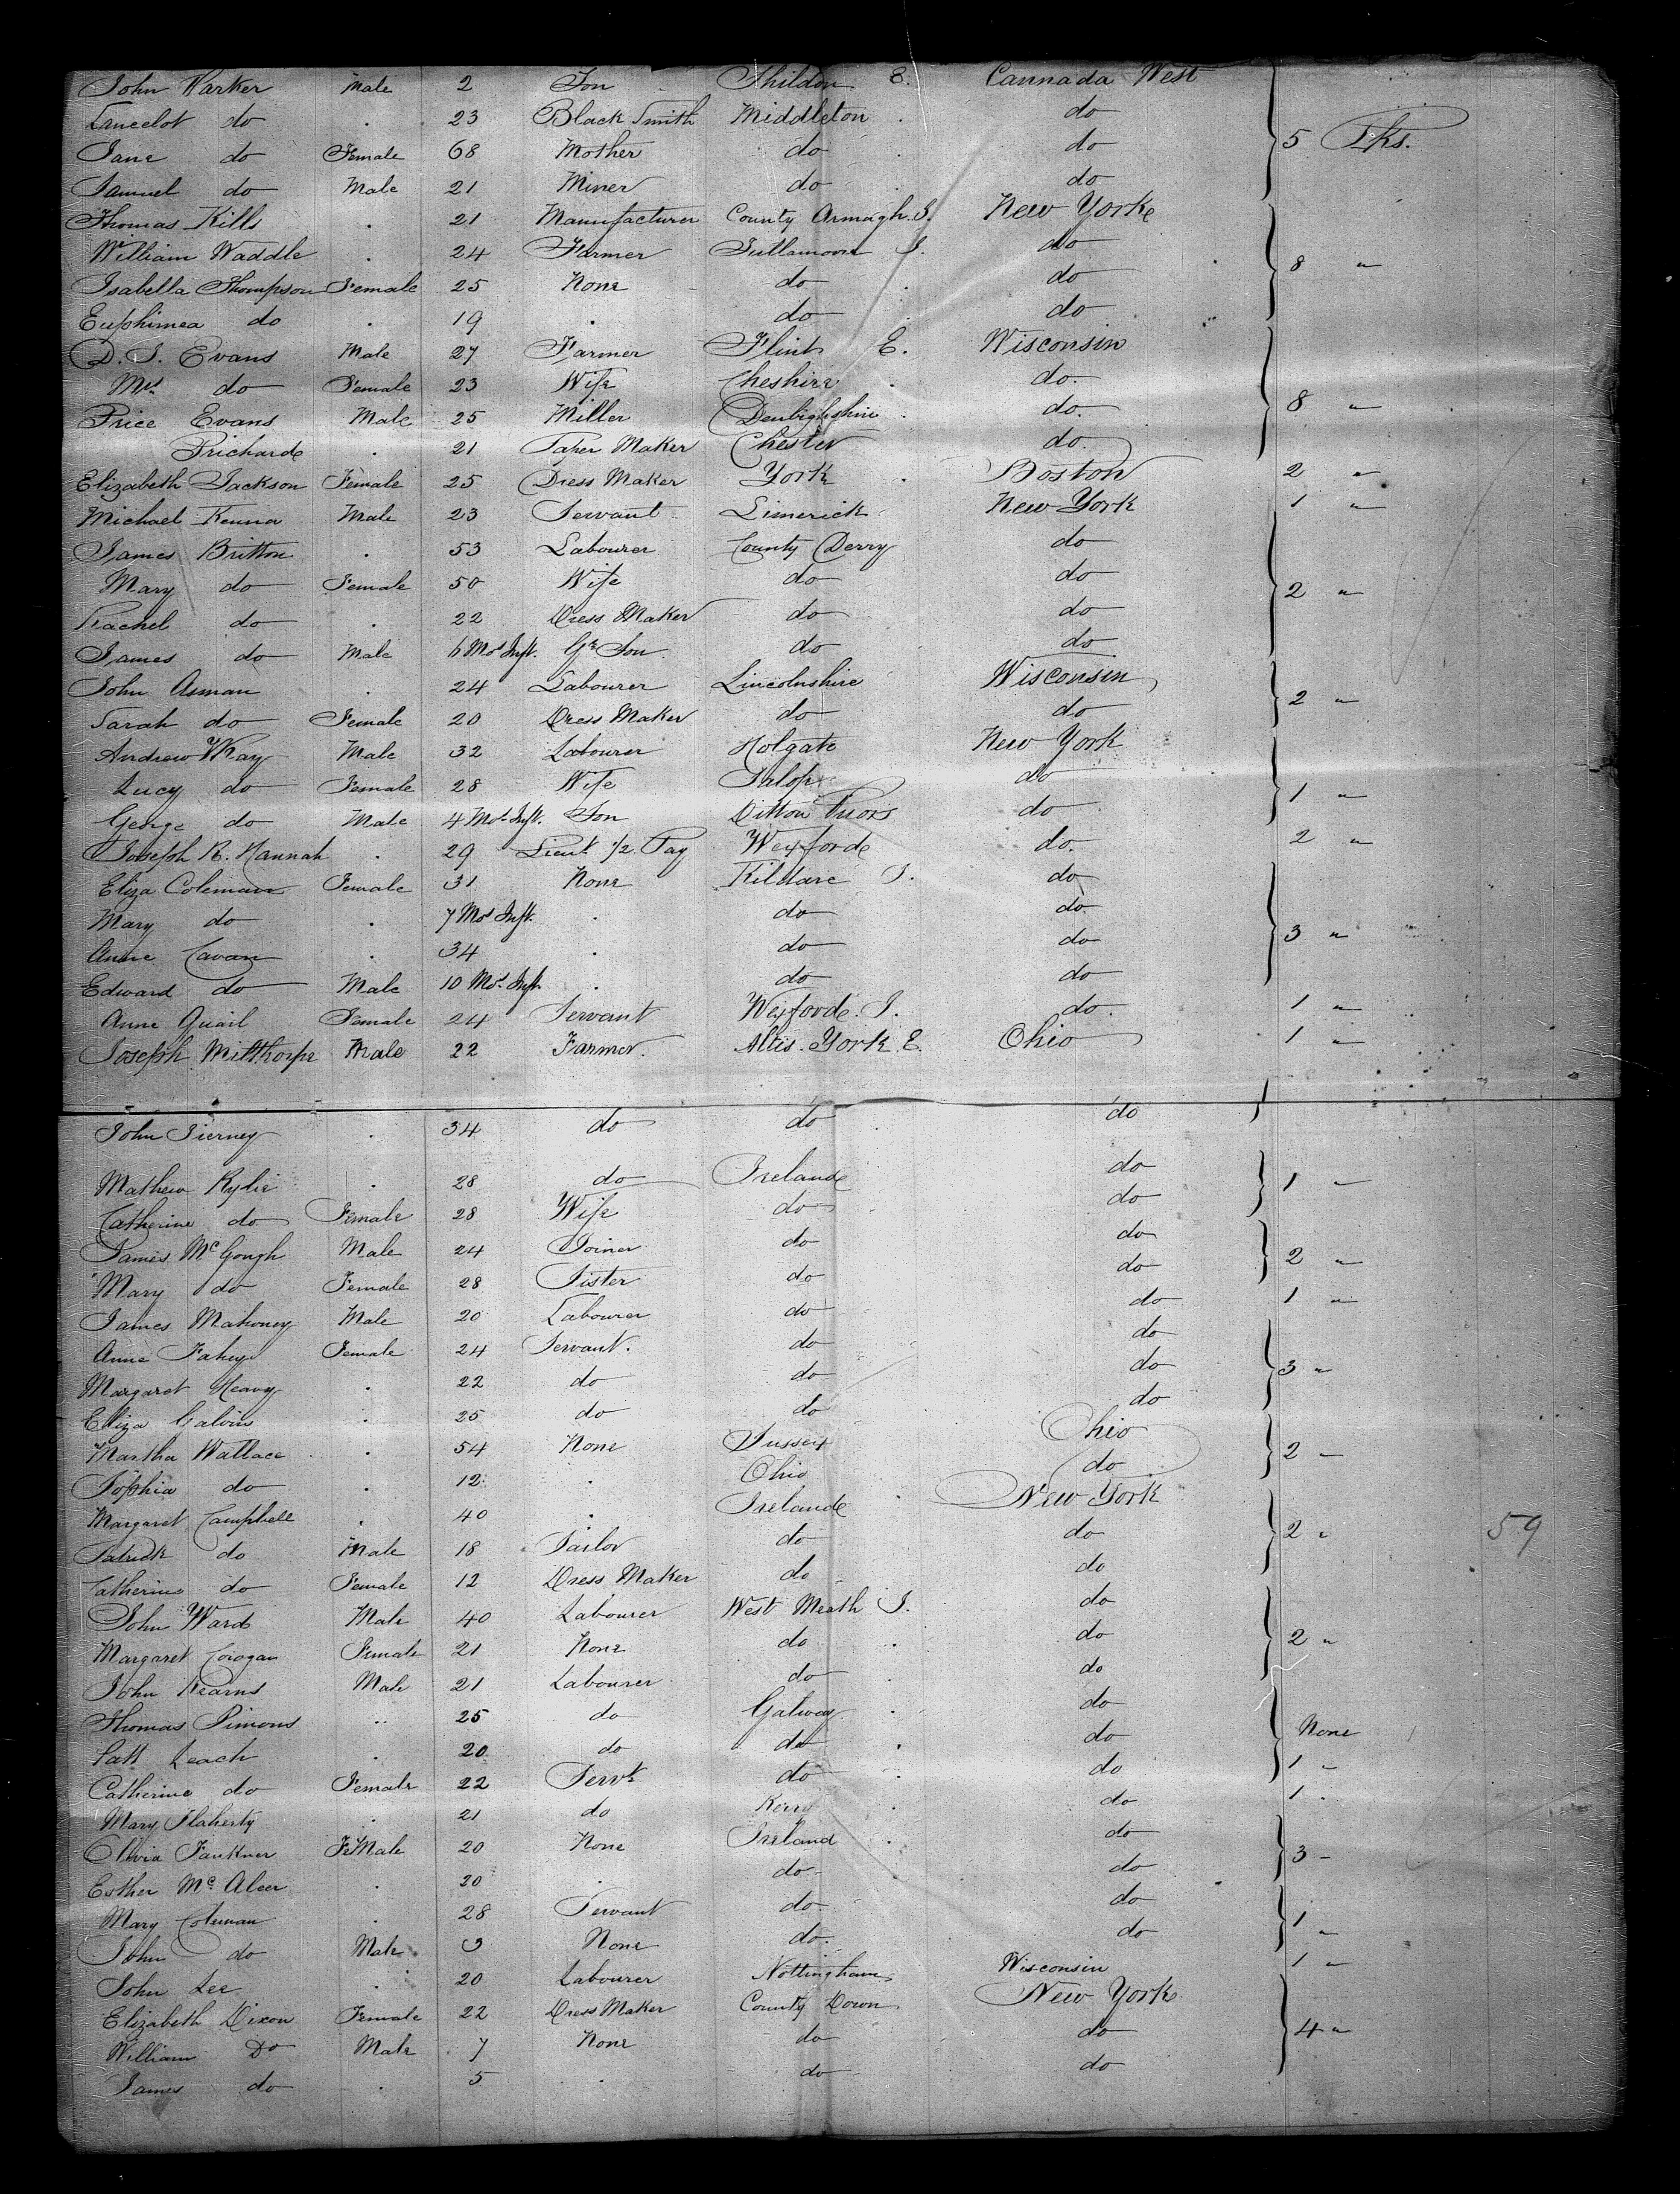 John Parker Male 2 Son Shildon E. Cannada West
Lancelot do . 23 Black Smith Middleton . do
Jane do Female 68 Mother do . do 5 Pks.
Samuel do Male 21 Miner do . do
Thomas Kills . 21 Manufacturer County Armagh. I. New York
William Waddle . 24 Farmer Tullamoore I. do
Isabella Thompson Female 25 None do . do 8 "
Euphimea do . 19 . do . do
D. J. Evans Male 27 Farmer Flint E. Wisconsin
Mrs. do Female 23 Wife Cheshire . do.
Price Evans Male 25 Miller Denbighshire . do. 8 "
Prichard . 21 Paper Maker Chester do.
Elizabeth Jackson Female 25 Dress Maker York . Boston 2 "
Michael Kenna Male 23 Servant Limerick New York 1 "
James Britton . 53 Labourer County Derry do
Mary do Female 50 Wife do do
Rachel do . 22 Dress Maker do do 2 "
James do Male 6 Mos Inft. Gr Son do do
John Asman . 24 Labourer Lincolnshire Wisconsin
Sarah do Female 20 Dress Maker do do 2 "
Andrew Wray Male 32 Labourer Holgate New York
Lucy do Female 28 Wife Salop do
George do Male 4 Mos. Inft. Son Ditton Priors do 1 "
Joseph R. Hannah . 29 Lieut 1/2 Pay Wexford do. 2 "
Eliza Coleman Female 31 None Kildare I. do
Mary do . 7 Mos Inft. . do do.
Anne Cavan . 34 . do do 3 "
Edward do Male 10 Mos. Inft . do do
Anne Quail Female 24 Servant Wexford. I. do. 1 "
Joseph Milthorpe Male 22 Farmer. Altis. York. E. Ohio 1 "
John Tierney . 34 do do do
Mathew Rylie . 28 do Ireland do
Catherine do Female 28 Wife do do 1 "
James McGough Male 24 Joiner do do
Mary do Female 28 Sister do do 2 "
James Mahoney Male 20 Labourer do do 1 "
Anne Fahey Female 24 Servant. do do
Margaret Heavy . 22 do do do 3 "
Eliza Galvin . 25 do do do
Martha Wallace . 54 None Sussex Ohio
Sophia do . 12 . Ohio do 2 "
Margaret Campbell . 40 . Ireland . New York
Patrick do Male 18 Tailor do do 2 " 59
Catherine do Female 12 Dress Maker do do
John Ward Male 40 Labourer West Meath I. do
Margaret Corogan Female 21 None do . do 2 "
John Kearns Male 21 Labourer do . do
Thomas Simons .. 25 do Galway . do
Patt Leach . 20 do do . do None
Catherine do Female 22 Servt do . do 1 "
Mary Flaherty . 21 do Kerry . do 1 .
Olivia Faukner FeMale 20 None Ireland . do
Esther McAleer . 20 . do do 3 "
Mary Coleman . 28 Servant do do
John do Male 3 None do. do 1 "
John Lee . 20 Labourer Nottingham Wisconsin 1 "
Elizabeth Dixon Female 22 Dress Maker County Down New York
William Do Male 7 None do do 4 "
James do . 5 . do do